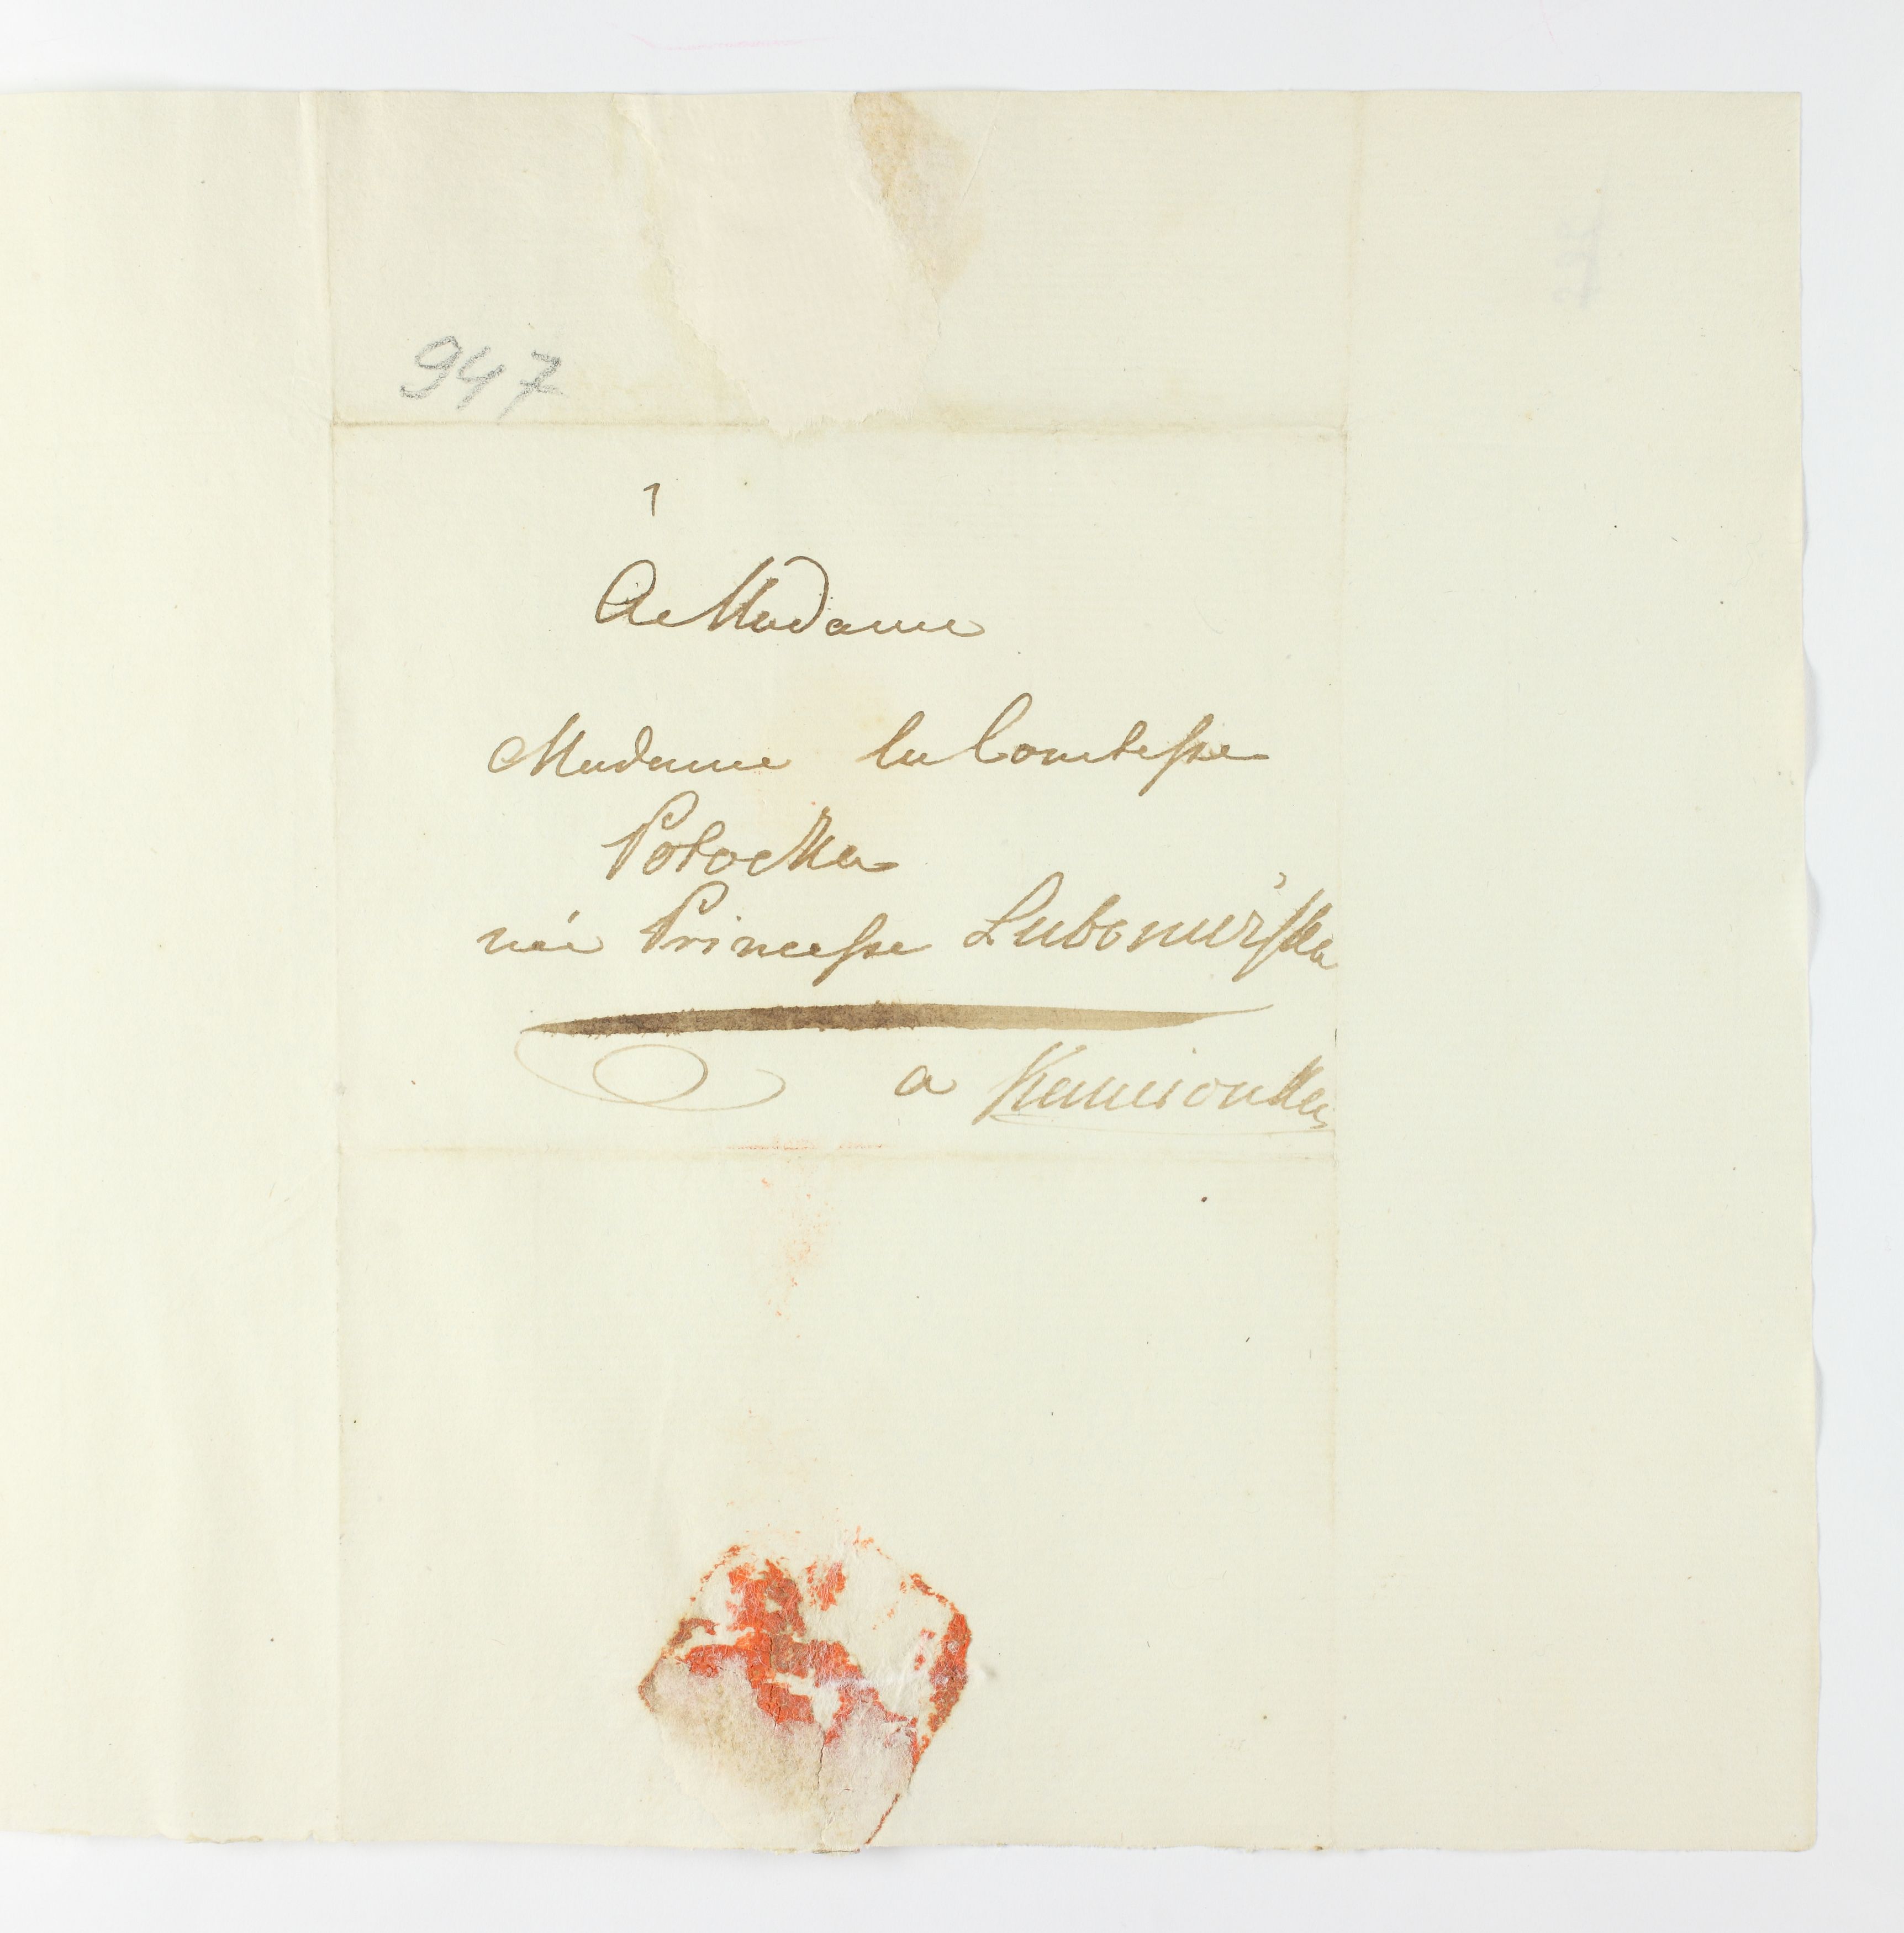 947
1
A Madame
Madame la Comtesse
Potocka
née Princesse Lubomirska
a Kamionka